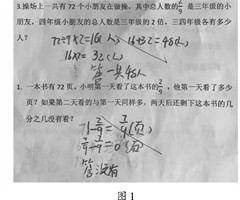 3.操场上一共有72个小朋友在做操,其中总人数的2/9是三年级的小
朋友,四年级小朋友的总人数是三年级的2倍,三四年级各有多少
人?
72÷9×2=16(人) 16+32=48(人)
16×2=32(人)
答一共48人
1. 一本书有72页,小明第一天看了这本书的2/9,他第一天看了多少
页?如果第二天看的与第一天同样多,两天后还剩下这本书的几
分之几没有看?
答没有
图1